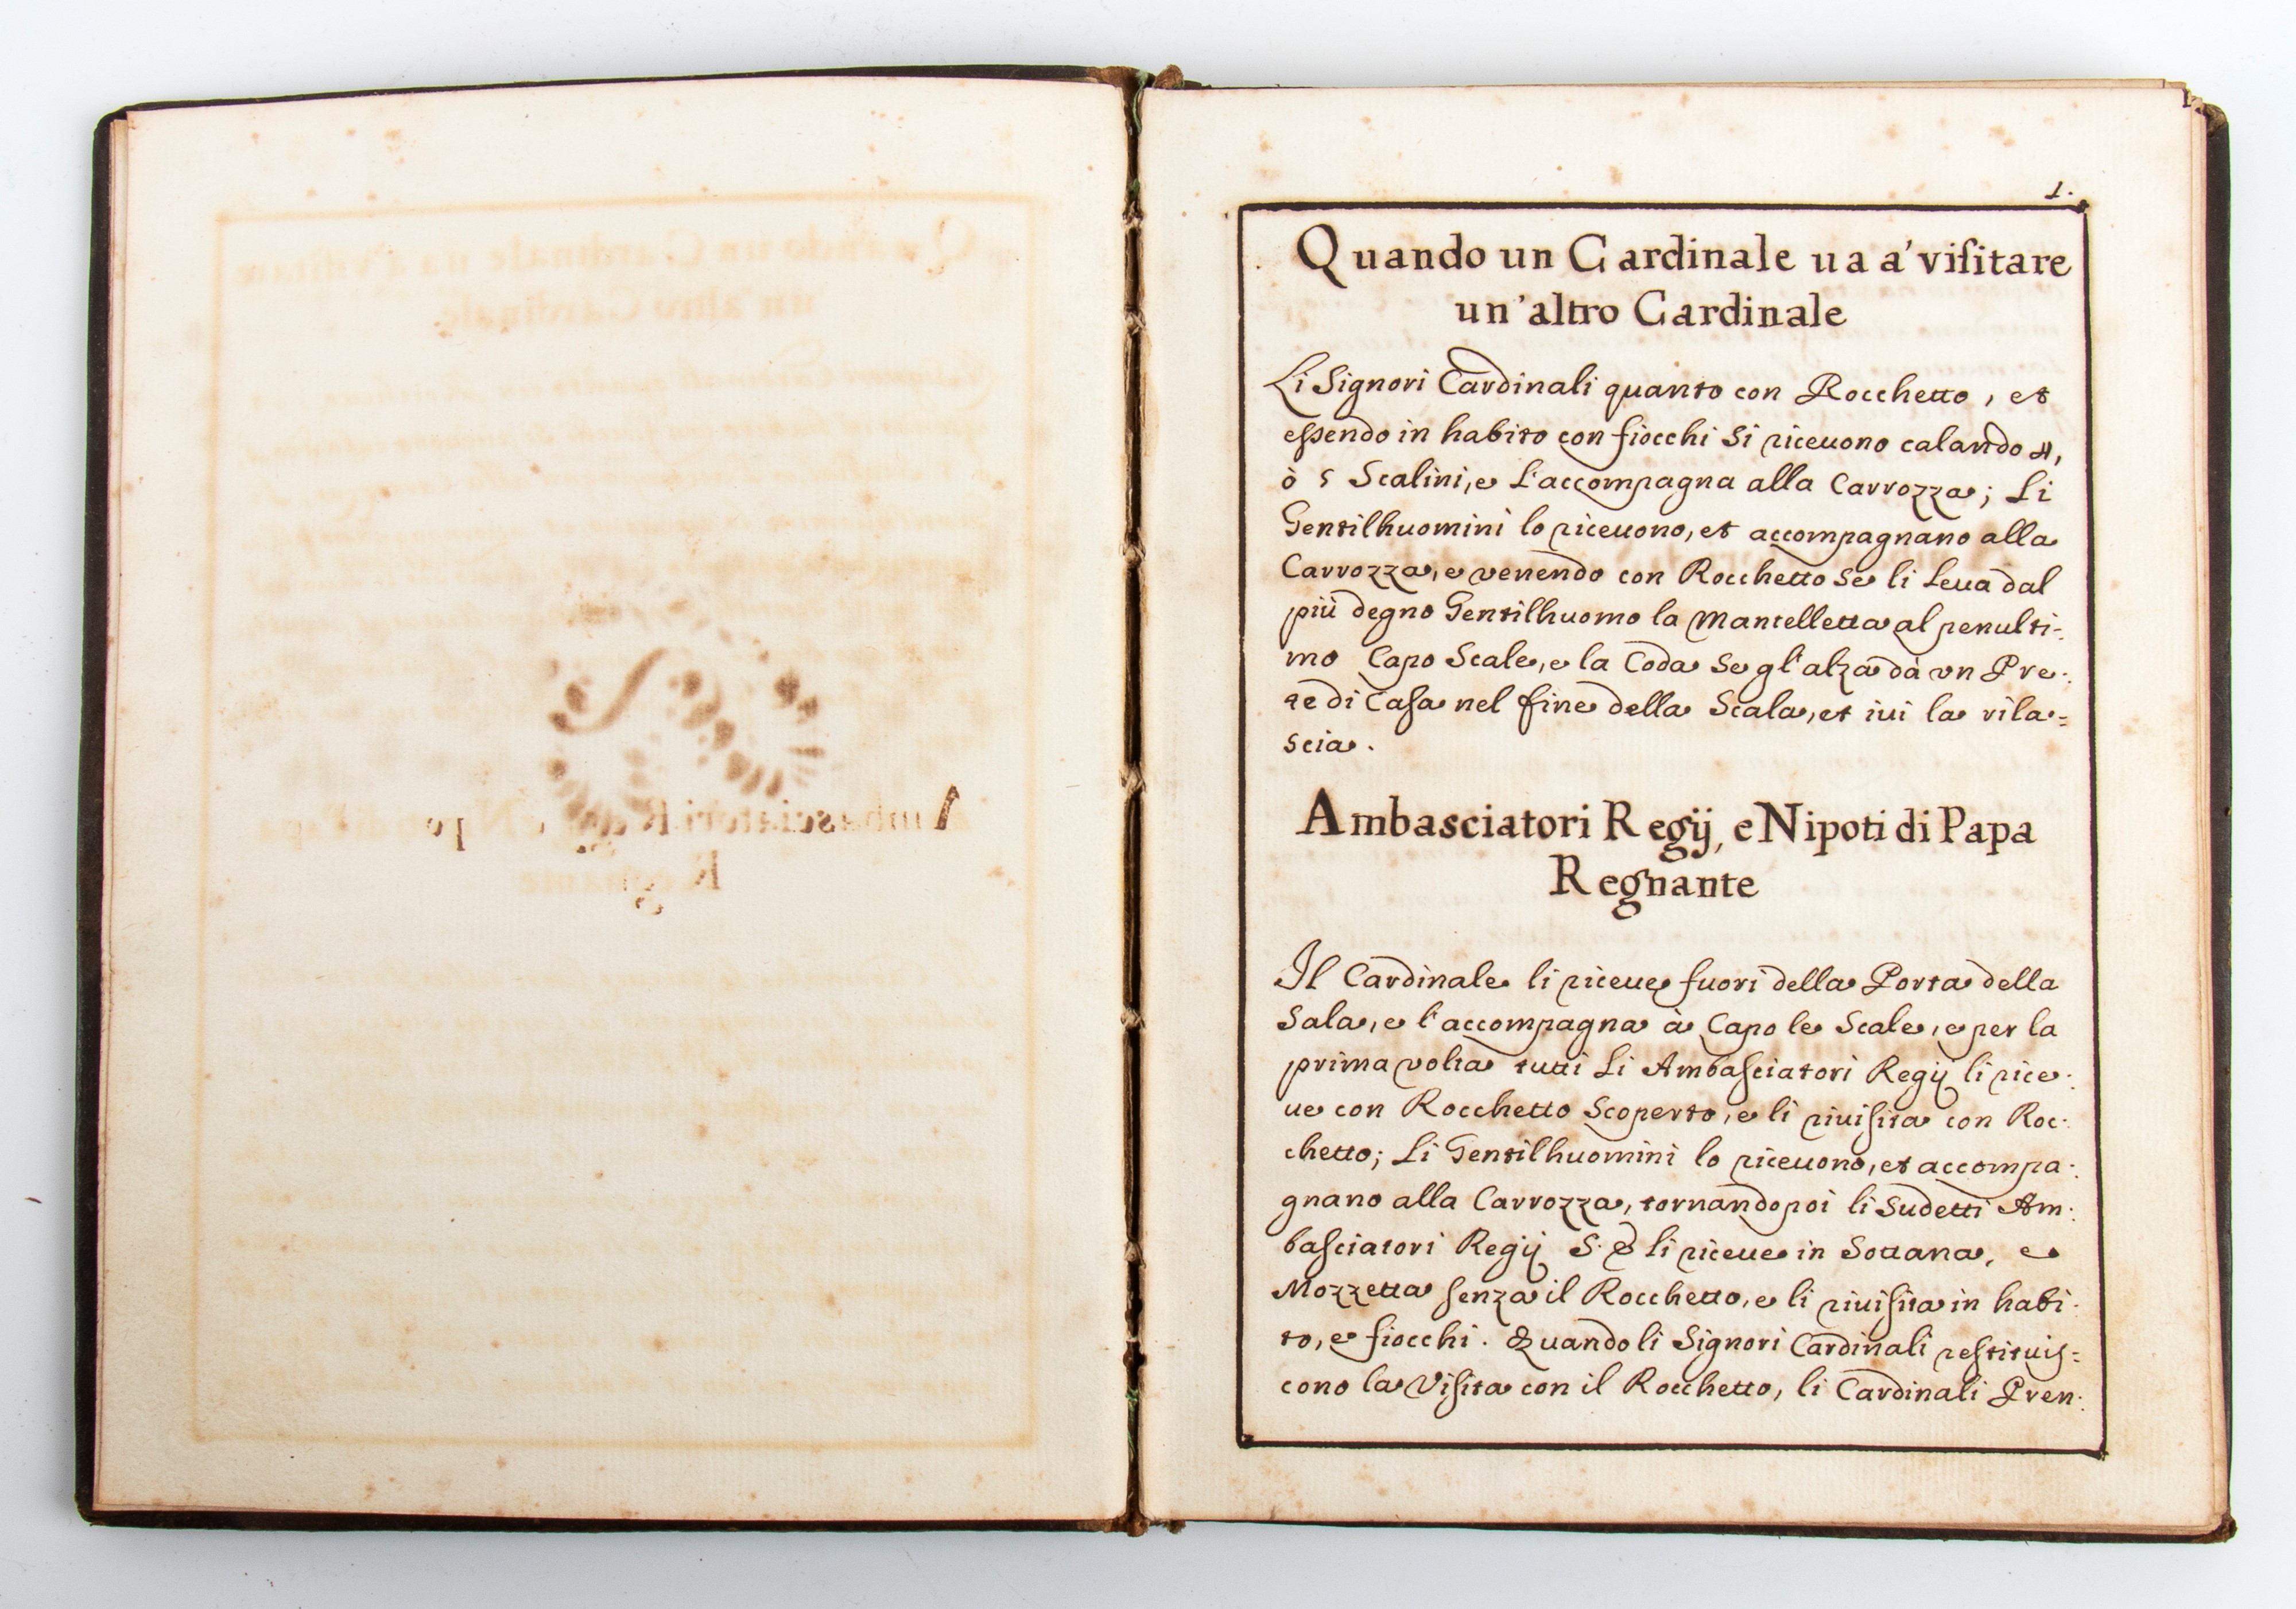 1.
Quando un Cardinale ua a' visitare
un'altro Cardinale
Li Signori Cardinali quanto con Rocchetto, et
essendo in habito con fiocchi si riceuono calando 4,
ò 5 Scalini, e l'accompagna alla Carrozza; Li
Gentilhuomini lo riceuono, et accompagnano alla
Carrozza, e venendo con Rocchetto se li leua dal
più degno Gentilhuomo la Mantelletta al penulti-
mo Capo Scale, e la Coda se gl'alza dà vn Pre-
te di Casa nel fine della Scala, et iui la rila=
scia.
Ambasciatori Regij, e Nipoti di Papa
Regnante
Il Cardinale li riceue fuori della Porta della
Sala, e l'accompagna à Capo le Scale, e per la
prima volta tutti li Ambasciatori Regij li rice-
ue con Rocchetto Scoperto, e li riuisita con Roc-
chetto; Li Gentilhuomini lo riceuono, et accompa-
gnano alla Carrozza, tornando poi li sudetti Am-
basciatori Regij S. E li riceue in Sottana, e
Mozzetta senza il Rocchetto, e li riuisita in habi-
to, e fiocchi. Quando li Signori Cardinali restituis=
cono la Visita con il Rocchetto, li Cardinali Pren-